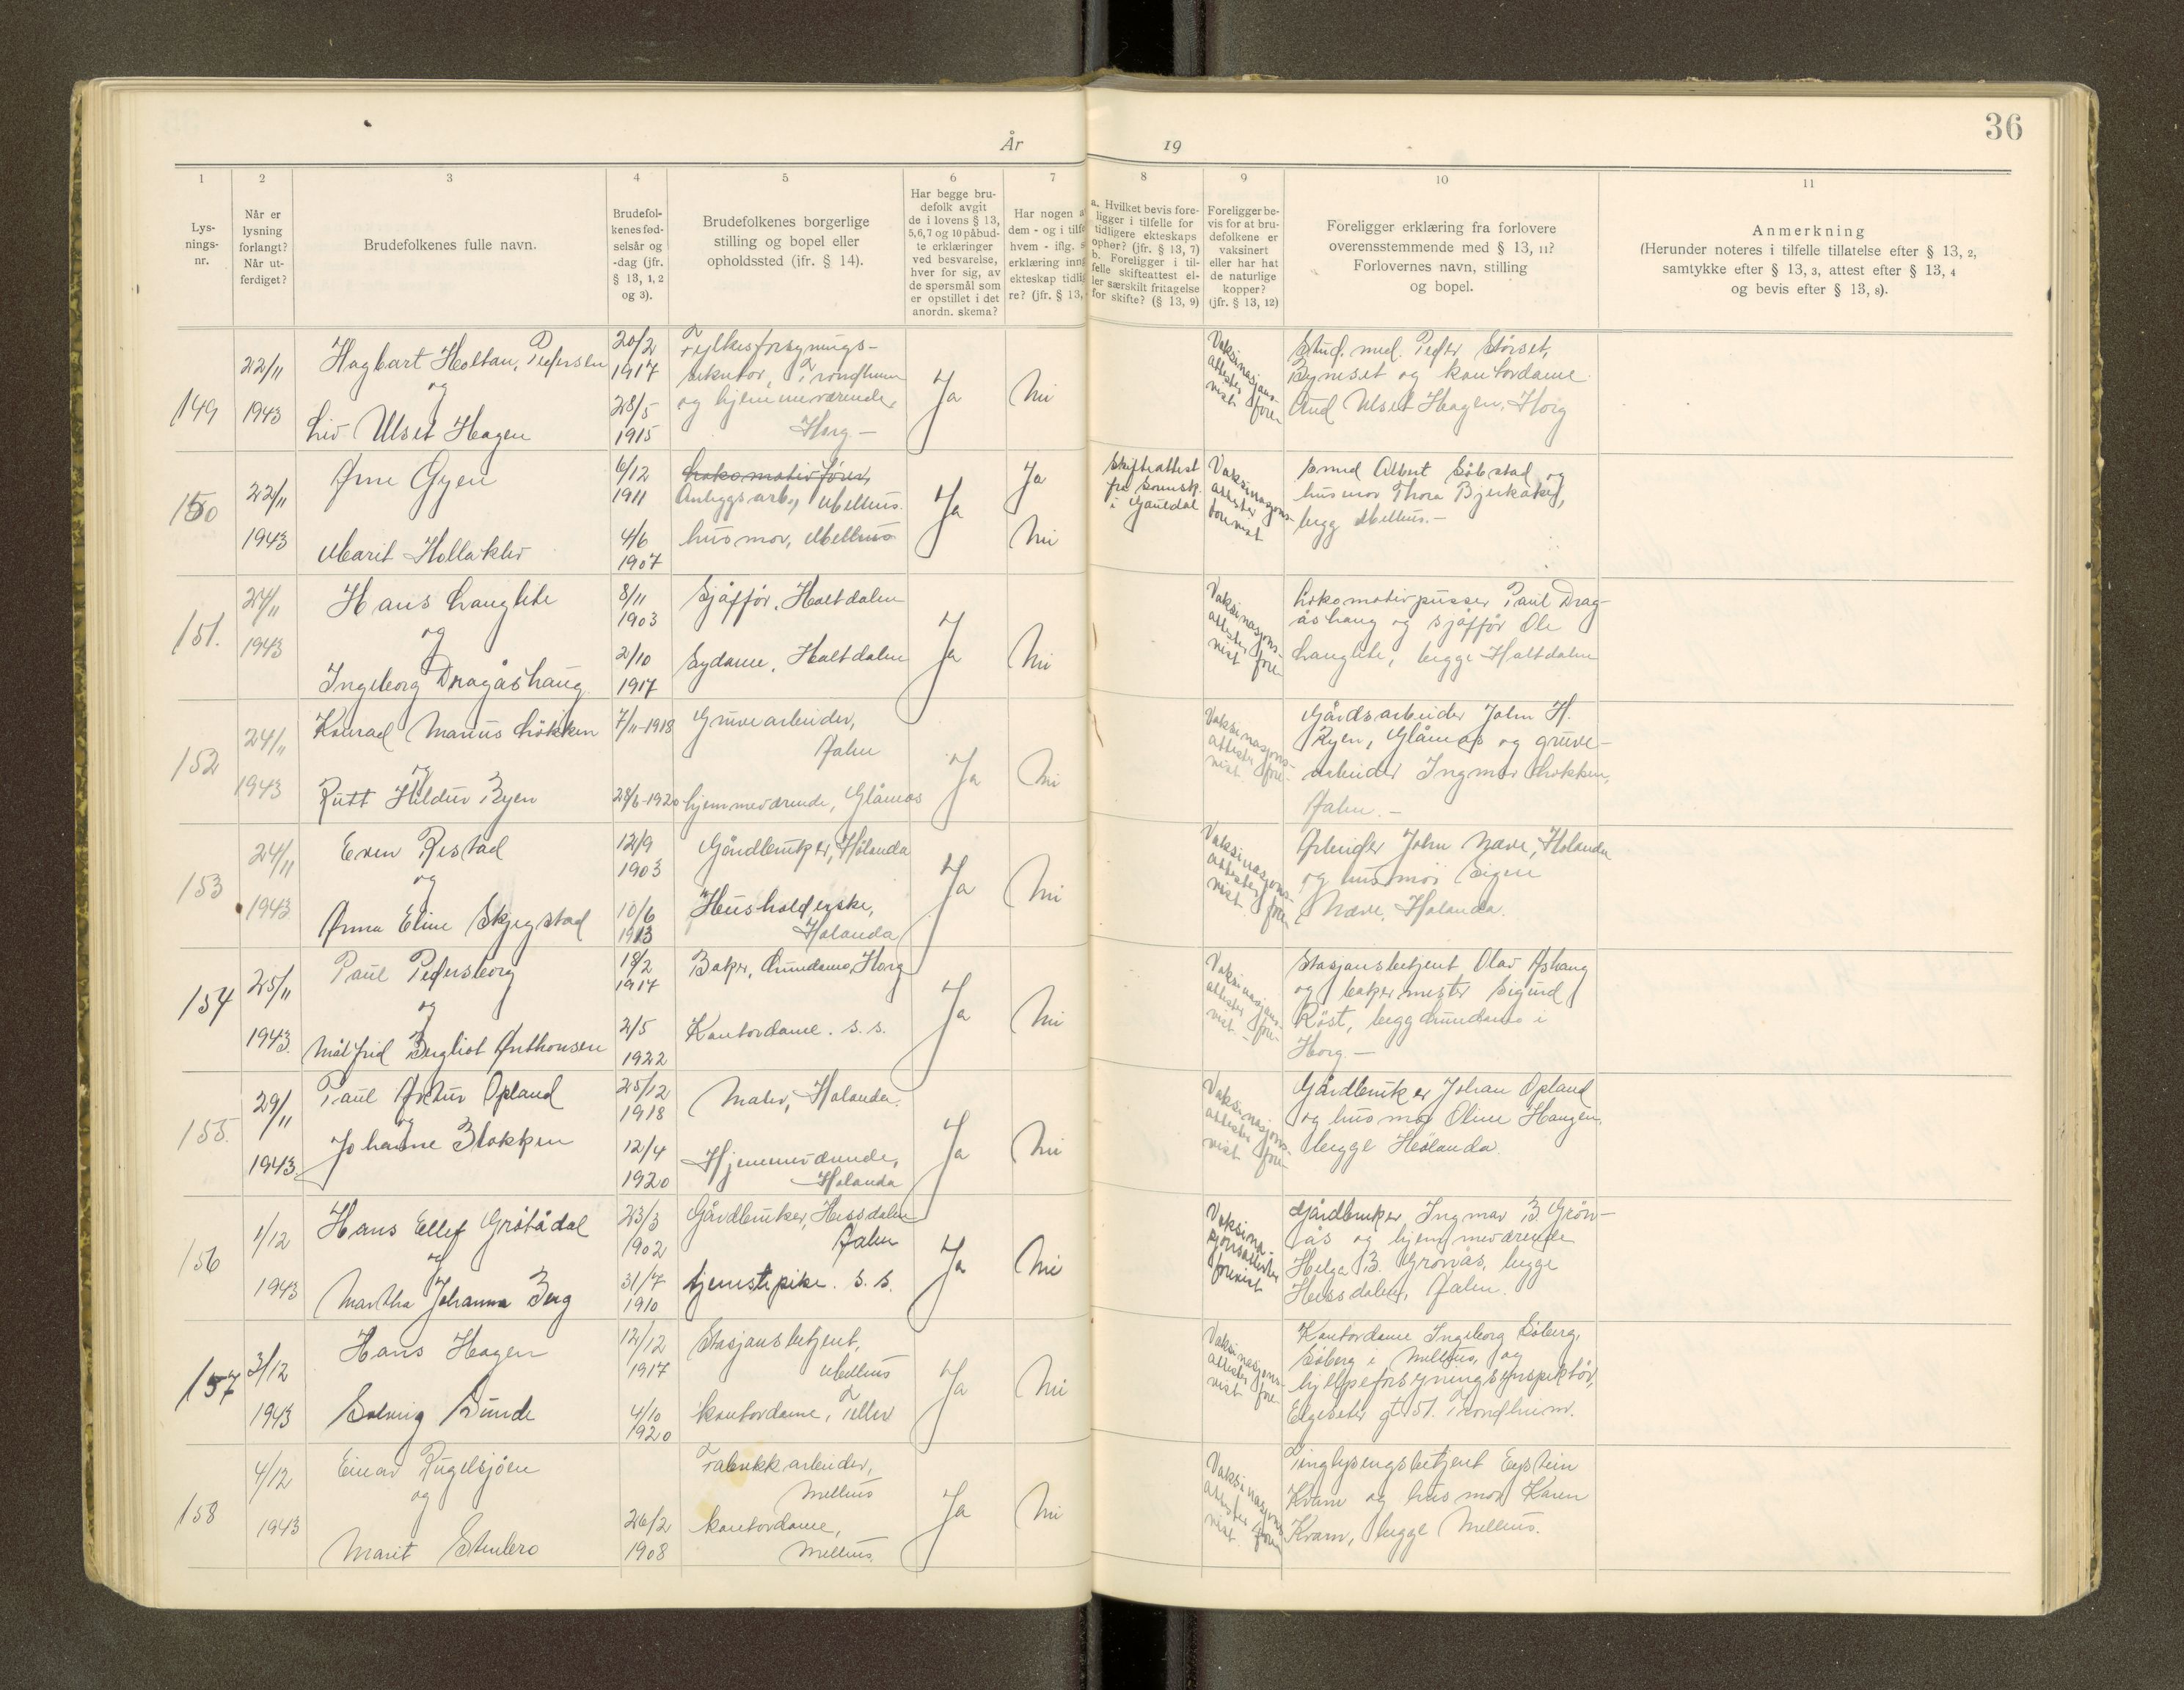 36
År 19
1
2
3
4
5
6
7
8
9
10
11
Lys-
nings-
nr.
Når er
lysning
forlangt?
Når ut-
ferdiget?
Brudefolkenes fulle navn.
Brudefol-
kenes fød-
selsår og
-dag (jfr.
§ 13, 1, 2
og 3).
Brudefolkenes borgerlige
stilling og bopel eller
opholdssted (jfr. § 14).
Har begge bru-
defolk avgit
de i lovens § 13,
5, 6, 7 og 10 påbud-
te erklæringer
ved besvarelse,
hver for sig, av
de spørsmål som
er opstillet i det
anordn. skema?
Har nogen a
dem - og i tilfe
hvem - iflg. s
erklæring inng
ekteskap tidlig
re? (jfr. § 13,
a. Hvilket bevis fore-
ligger i tilfelle for
tidligere ekteskaps
ophør? (jfr. § 13, 7)
b. Foreligger i til-
felle skifteattest el-
ler særskilt fritagelse
for skifte? (§ 13, 9)
Foreligger be-
vis for at bru-
defolkene er
vaksinert
eller har hat
de naturlige
kopper?
(jfr. § 13, 12)
Foreligger erklæring fra forlovere
overensstemmende med § 13, 11?
Forlovernes navn, stilling
og bopel.
Anmerkning
(Herunder noteres i tilfelle tillatelse efter § 13, 2,
samtykke efter § 13, 3, attest efter § 13, 4
og bevis efter § 13, 8).
149
22/11
1943
Hagbart Holtan, Pedersen
og
Liv Ulset Hagen
20/2
1917
28/5
1915
Fylkesforsynings-
sekretær, Trondheim
og hjemmeværende,
Horg -
Ja
Nei
Vaksinasjons-
attester fore-
vist
Stud. med. Peder Störset,
Bynset og kontordame
Aud Ulset Hagen, Horg
150
22/11
1943
Arne Gyen
Marit Hollaklev
6/12
1911
4/6
1907
Lokomotivfører,
Anleggsarb., Melhus.
husmor, Melhus
Ja
Ja
Nei
Skifteattest
fra sorensk.
i Gauldal
Vaksinasjons-
attester
forevist
Smed Albert Söbstad og
husmor Thora Bjerkaker,
begg Melhus. -
151.
24/11
1943
Hans Langlete
og
Ingeborg Dragåshaug
8/11
1903
2/10
1917
Sjåffør, Haltdalen
Sydame, Haltdalen
Ja
Nei
Vaksinasjons-
attester fore-
vist
Lokomotivpusser Paul Drag-
åshaug og sjåffør Ole
Langlete, begge Haltdalen
152
24/11
1943
Konrad Marius Løkken
og
Rutt Hildur Ryen
7/11-1918
28/6-1920
Gruvearbeider,
Ålen
hjemmeværende, Glåmos
Ja
Nei
Vaksinasjons-
attester fore-
vist.
Gårdsarbeider John H.
Ryen, Glåmos og gruve-
arbeider Ingmar Løkken,
Ålen. -
153
24/11
1943
Even Restad
og
Anna Eline Skjegstad
12/9
1903
10/6
1913
Gårdbruker, Hölanda
Husholderske,
Hölanda
Ja
Nei
Vaksinasjons-
attester fore-
vist.
Arbeider John Næve, Hölanda
og husmor Signe
Næve, Hölanda.
154
25/11
1943.
Paul Pedersborg
og
Målfrid Bergliot Anthonsen
18/2
1917
2/5
1922
Baker, Lundamo, Horg
Kontordame. s. s.
Ja
Nei
Vaksinasjons-
attester fore-
vist
Stasjonsbetjent Olav Åshaug
og bakermester Sigurd
Röst, begg Lundamo i
Horg. -
155.
29/11
1943
Paul Artur Opland
og
Johanne Blokken
25/12
1918
12/4
1920
Maler, Hölanda.
Hjemmeværende,
Hölanda
Ja
Nei
Vaksinasjons-
attester fore-
vist
Gårdbruker Johan Opland
og husmor Oline Haugen,
begge Hölanda.
156
1/12
1943
Hans Ellef Grötådal
og
Martha Johanna Berg
23/3
1902
31/7
1910
Gårdbruker, Hessdalen
Ålen
tjenestepike. s. s.
Ja
Nei
Vaksina-
sjonsattester
forevist
Gårdbruker Ingmar B. Grön-
ås og hjemmeværende
Helga B. Grønås, begge
Hessdalen, Ålen.
157
3/12
1943
Hans Hagen
Solveig Sunde
12/12
1917
4/10
1920
Stasjonsbetjent,
Melhus
kontordame, Tiller
Ja
Nei
Vaksinasjons-
attester fore-
vist
Kontordame Ingeborg Söberg,
Söberg i Melhus, og
hjelpeforsyningsinspektör,
Elgeseter gt. 51. Trondheim.
158
4/12
1943
Einar Rugelsjöen
og
Marit Stenbro
26/2
1908
Fabrikkarbeider,
Melhus
kontordame,
Melhus.
Ja
Nei
Vaksinasjons-
attester fore-
vist
Tinglysingsbetjent Eystein
Kvam og husmor Karen
Kvam, begge Melhus.